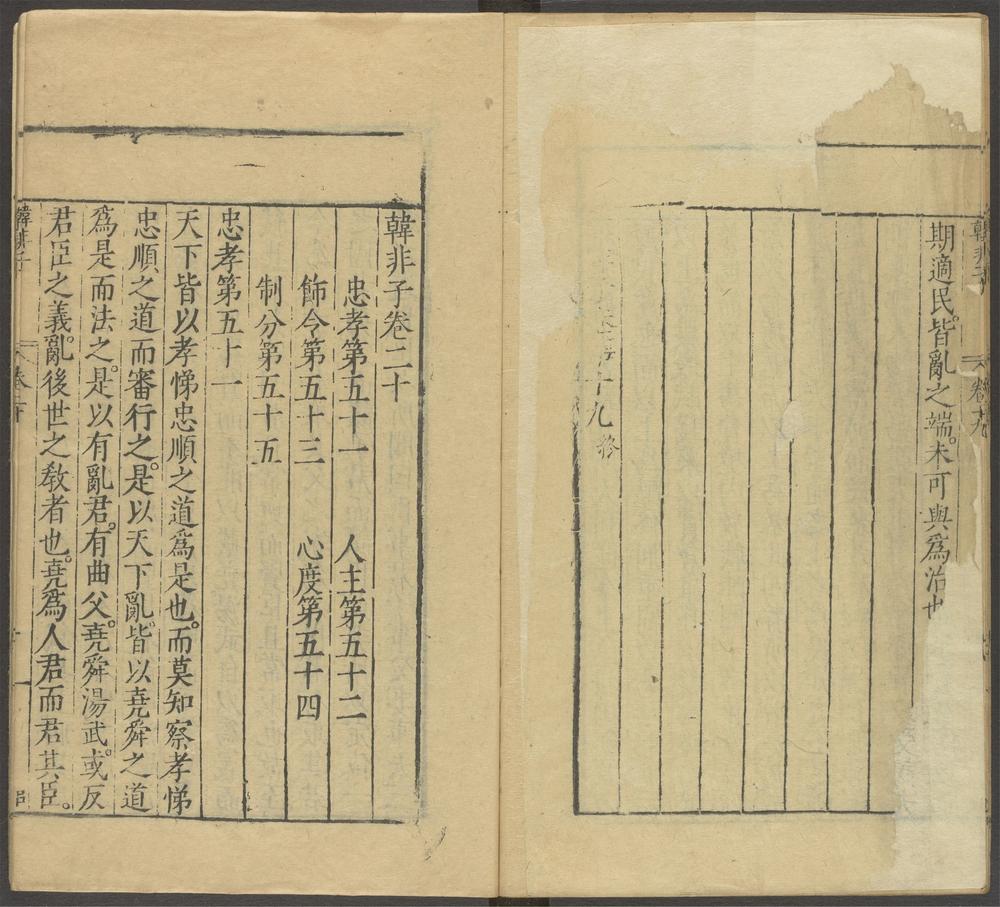 韓非子
卷十九
期適民。皆亂之端。未可與爲治也
十九終
韓非子卷二十
忠孝第五十一 人主第五十二
飾令第五十三 心度第五十四
制分第五十五
忠孝第五十一
天下皆以孝悌忠順之道爲是也。而莫知察孝悌
忠順之道而審行之。是以天下亂。皆以堯舜之道
爲是而法之。是以有亂君。有曲父。堯舜湯武。或反
君臣之義。亂後世之教者也。堯爲人君而君其臣。
韓非子
卷二十
一